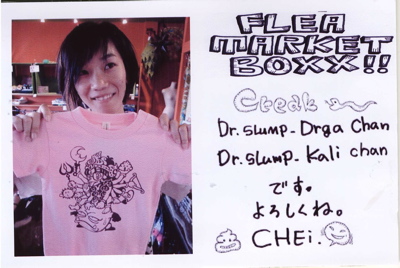 FLEA
MARKET
BOXX!!
Creak
Dr.slump-Drga Chan
Dr.slump-Kali chan
です。
よろしくね。
CHEi.